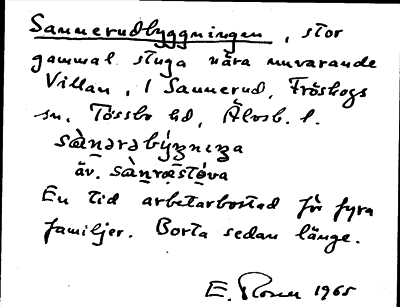 Sannerudbyggningen, stor
gammal stuga nära nuvarande
Villan, i Sannerud, Fröskogs
sn. Tössbo hd, Älvsb. l.
sànərəbýgnɪŋa
äv. sànrəstóva
En tid arbetarbostad för fyra
familjer. Borta sedan länge.
E. 1965